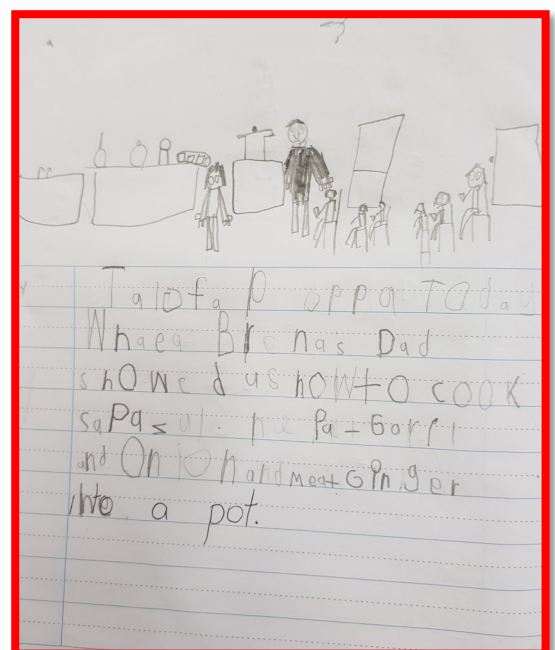 Talofa Poppa Today
Whaea Brenas Dad
showed us how to cook
saPasui. he Pat Gorrl
and Onion and meat Ginger
into a pot.